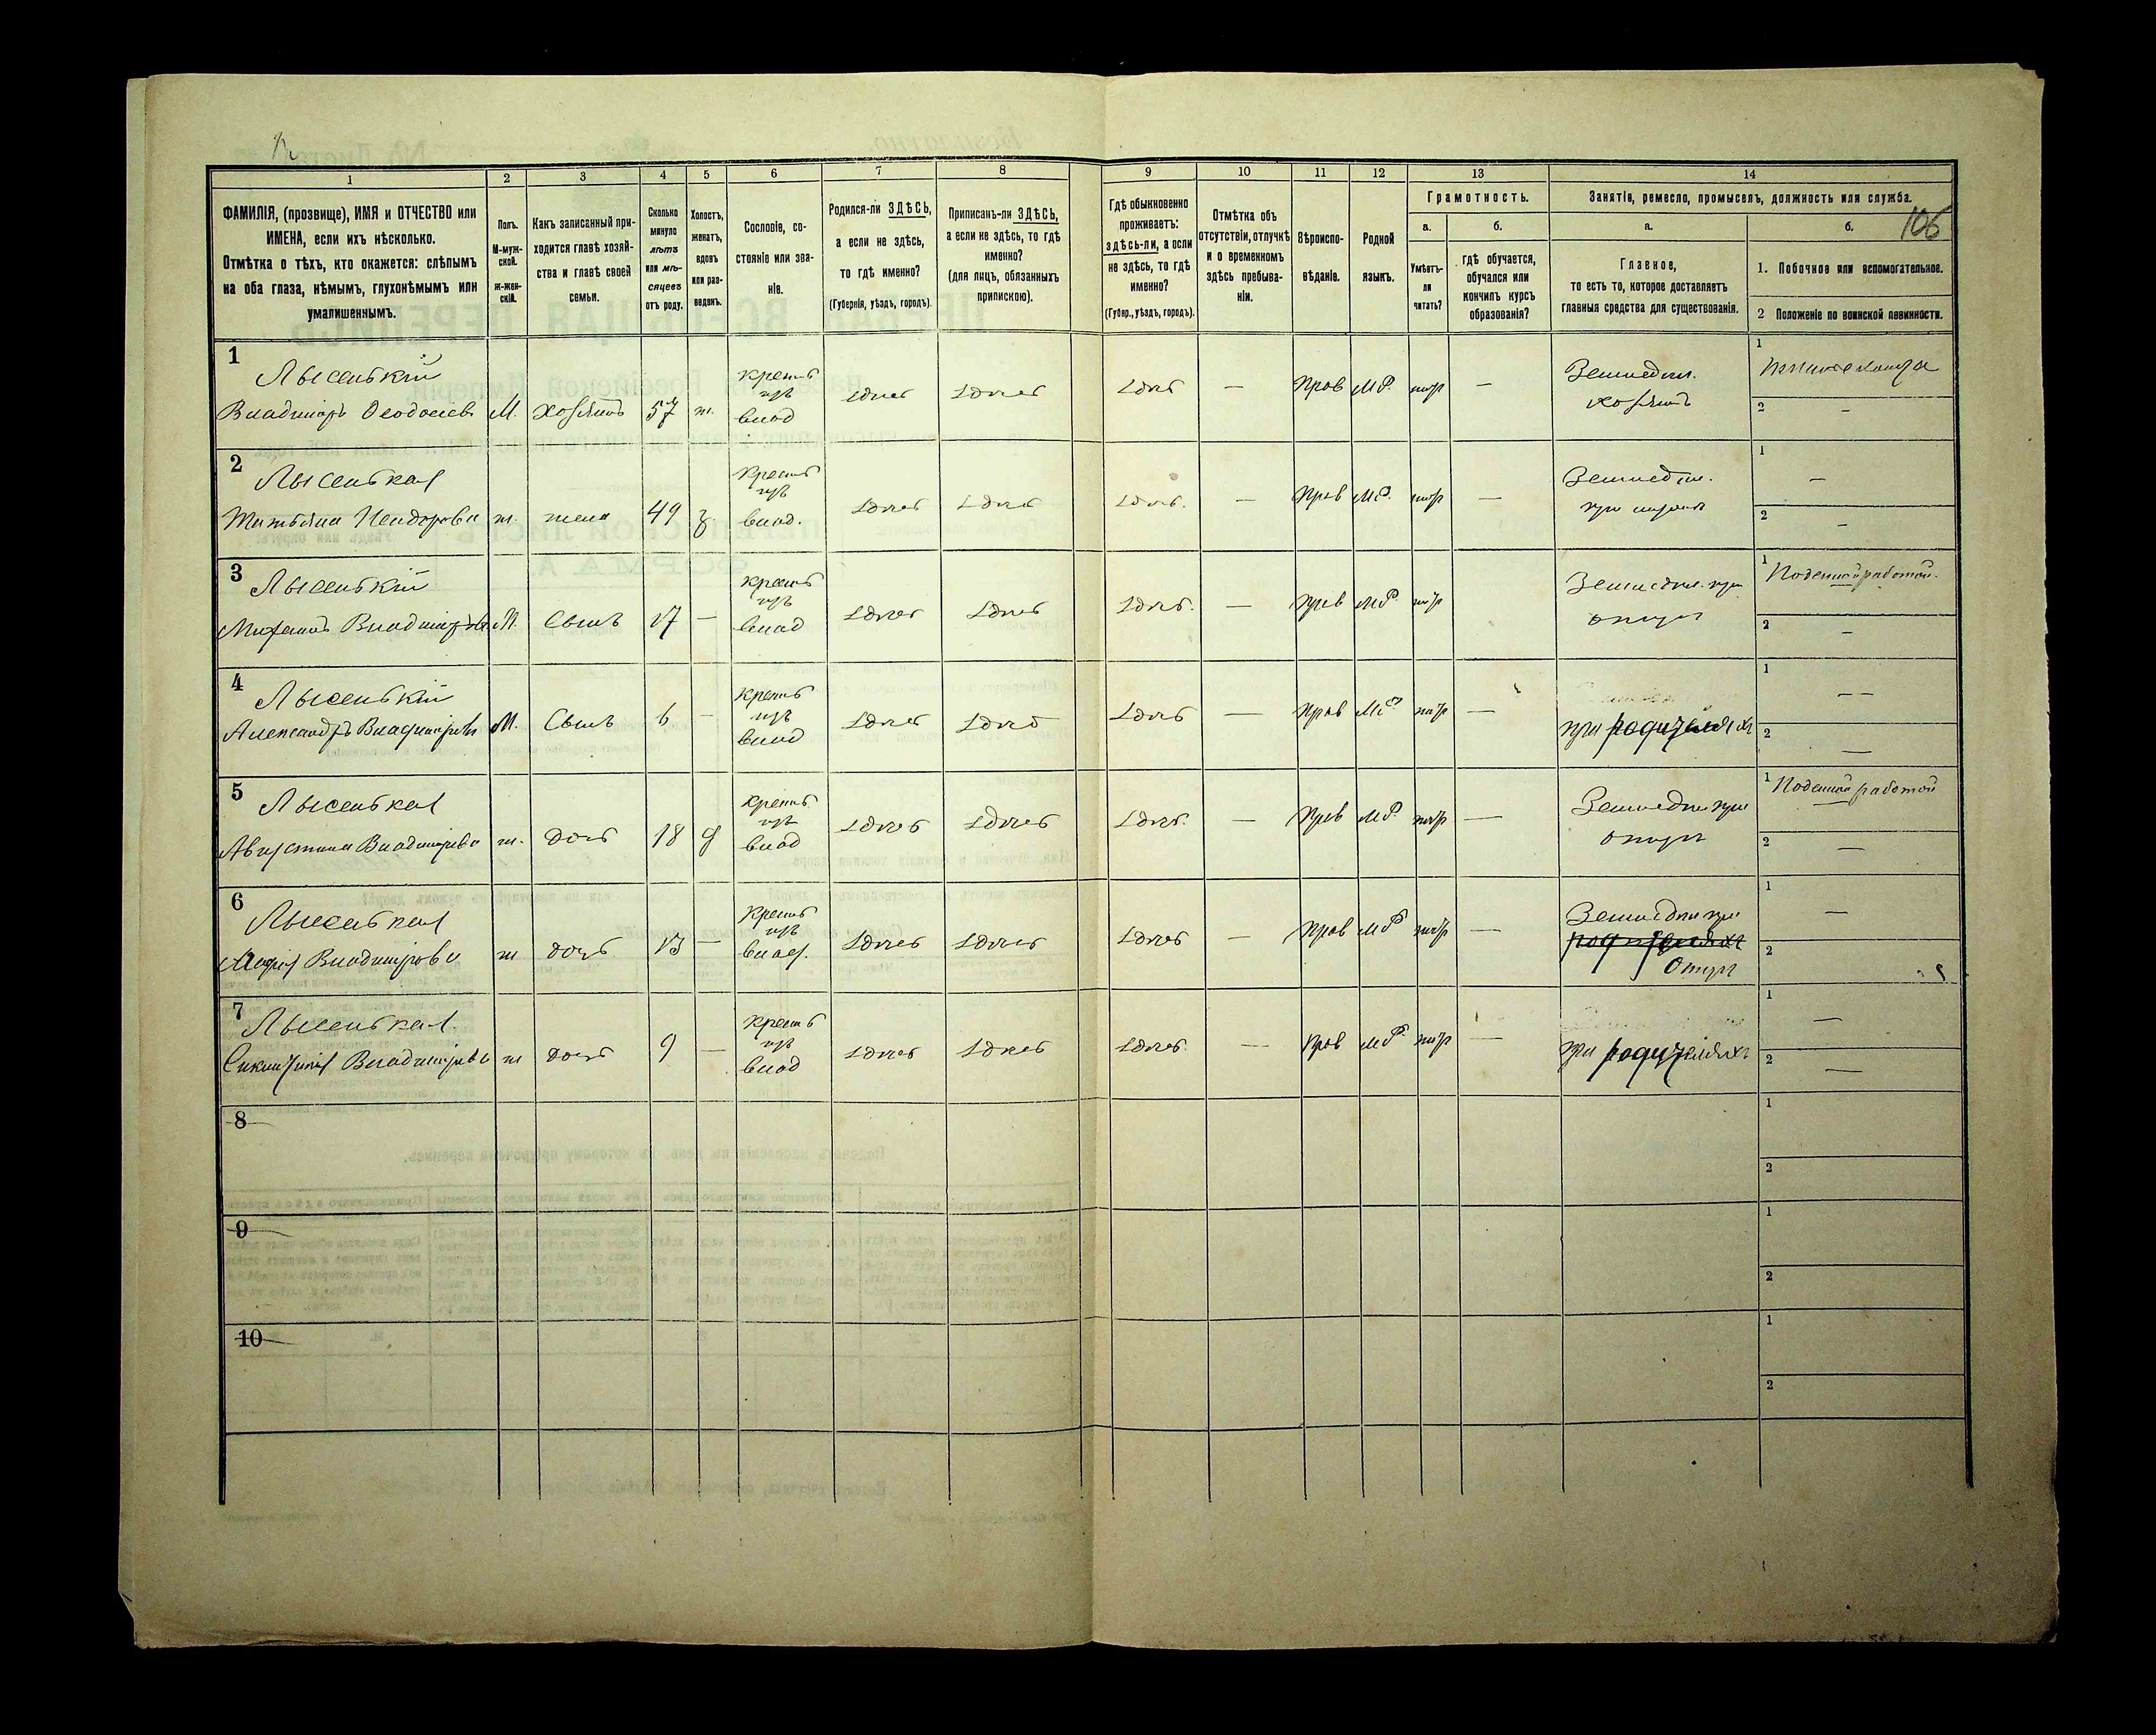 106
1 2 3 4 5 6 7 8 9 10 11 12 13 14
ФАМИЛІЯ, (прозвище), ИМЯ и ОТЧЕСТВО или
ИМЕНА, если ихъ нѣсколько.
Отмѣтка о тѣхъ, кто окажется: слѣпымъ
на оба глаза, нѣмымъ, глухонѣмымъ или
умалишеннымъ.
Полъ.
М-муж-
ской.
Ж-жен-
скій.
Какъ записанный при-
ходится главѣ хозяй-
ства и главѣ своей
семьи.
Сколько
минуло
лѣтъ
или мѣ-
сяцевъ
отъ роду.
Холостъ,
женатъ,
вдовъ
или раз-
веденъ.
Сословіе, со-
стояніе или зва-
ніе.
Родился-ли ЗДѢСЬ,
а если не здѣсь,
то гдѣ именно?
(Губернія, уѣздъ, городъ).
Приписанъ-ли ЗДѢСЬ,
а если не здѣсь, то гдѣ
именно?
(для лицъ, обязанныхъ
припискою).
Гдѣ обыкновенно
проживаетъ:
здѣсь-ли, а если
не здѣсь, то гдѣ
именно?
(Губер., уѣздъ, городъ).
Отмѣтка объ
отсутствіи, отлучкѣ
и о временномъ
здѣсь пребыва-
ніи.
Вѣроиспо-
вѣданіе.
Родной
языкъ.
Грамотность.
а.
Умѣетъ-
ли
читать?
б.
гдѣ обучается,
обучался или
кончилъ курсъ
образованія?
Занятія, ремесло, промыселъ, должность или служба.
а.
Главное,
то есть то, которое доставляетъ
главныя средства для существованія.
б.
1. Побочное или вспомогательное.
2 Положеніе по воинской повинности.
1
Лысенькій
Владиміръ Ѳеодосіевъ М. хозяинъ 57 ж. крест изъ влад здѣсь здѣсь здѣсь — Прав М.Р. —
Земледѣл.
хозяинъ
1
2 —
2
Лысенькая
Татьяна ж. жена 49 з крест изъ влад. здѣсь здѣсь здѣсь. — Прав М.Р. —
Земледѣл.
при мужѣ
1 —
2 —
3
Лысенькій
Михаилъ Владиміровъ М. Сынъ 17 — крест изъ влад здѣсь здѣсь здѣсь. — Прав М.Р.
Земледѣл. при
отцѣ
1 Поденной работой.
2 —
4
Лысенькій
Александръ Владиміровъ М. Сынъ 6 — крест изъ влад здѣсь здѣсь здѣсь — Прав М.Р. —
при родителяхъ
1 — —
2 —
5
Лысенькая
Августина Владимірова ж. дочь 18 д крест изъ влад здѣсь здѣсь здѣсь. — Прав М.Р. —
Земледѣл при
отцѣ
1 Поденной работой
2 —
6
Лысенькая
Марія Владимірова ж дочь 13 — крест изъ влад. здѣсь здѣсь здѣсь — Прав М.Р. —
Земледѣл при
родителяхъ
Отцѣ
1 —
2
7
Лысенькая.
Владимірова ж дочь 9 — крест изъ влад здѣсь здѣсь здѣсь. — Прав М.Р. —
при родителяхъ
1 —
2 —
8
1
2
9
1
2
10
1
2